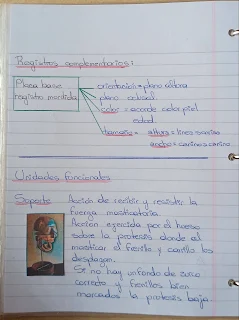 Registros complementarios:
Placa base
registro mordida
orientación = plano
plano oclusal
color = acorde color piel
edad
tamaño = altura = línea sonrisa
ancho = canino a canino
Unidades funcionales
Soporte Acción de recibir y resistir la
fuerza masticatoria
Acción ejercida por el hueso
sobre la prótesis donde al
masticar el frenillo y carrillo los
desplazan.
Se no hay un fondo de surco
correcto y frenillos bien
marcados la prótesis baja.